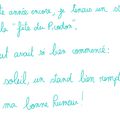 te année encore, je tenais un st
la "fête du Piodon".
ut avait si bien commencé:
soleil, un stand bien rempl
ma bonne humeu!